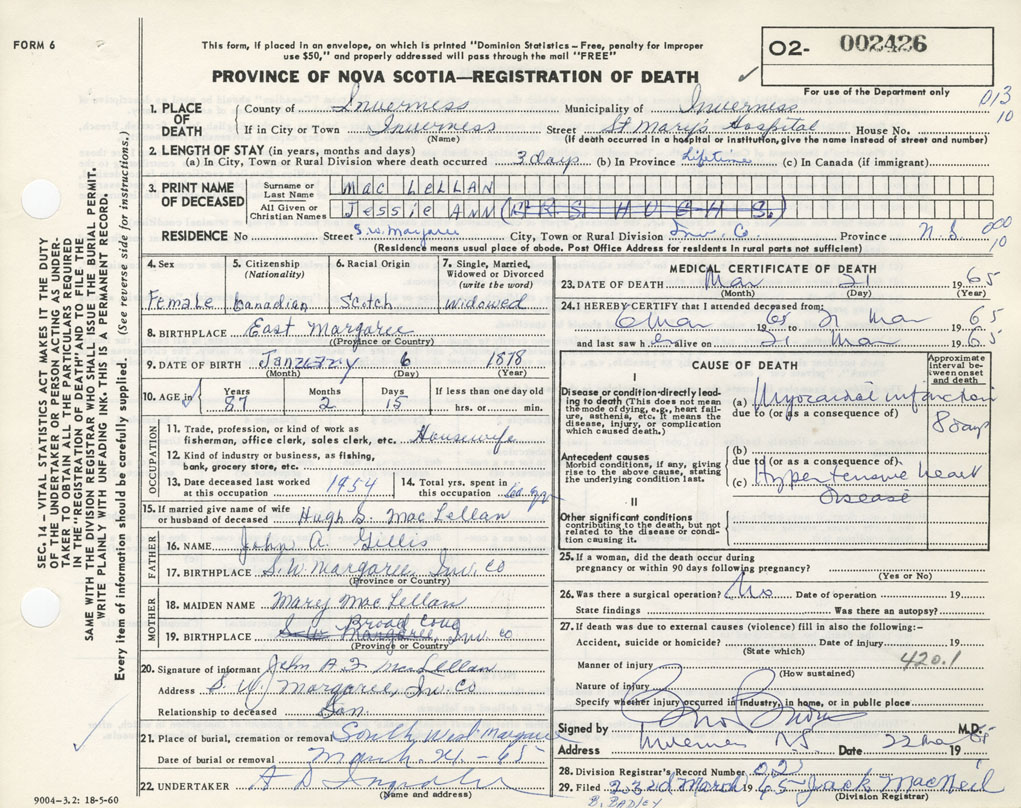 FORM 6
This form, if placed in an envelope, on which is printed "Dominion Statistics – Free, penalty for improper
use $50," and properly addressed will pass through the mail "FREE"
PROVINCE OF NOVA SCOTIA—REGISTRATION OF DEATH
O2- 002426
For use of the Department only
013
10
1. PLACE OF DEATH
County of Inverness Municipality of Inverness
If in City or Town Inverness Street St Mary's Hospital House No.
(Name) (If death occurred in a hospital or institution, give name instead of street and number)
2. LENGTH OF STAY (in years, months and days)
(a) In City, Town or Rural Division where death occurred 3 days (b) In Province Lifetime (c) In Canada (if immigrant)
3. PRINT NAME OF DECEASED
Surname or Last Name MacLELLAN
All Given or Christian Names Jessie ANN (MRS HUGH S.)
RESIDENCE No Street S.W. Margaree City, Town or Rural Division Inv. Co. Province N.S
000
10
(Residence means usual place of abode. Post Office Address for residents in rural parts not sufficient)
4. Sex 5. Citizenship (Nationality) 6. Racial Origin 7. Single, Married, Widowed or Divorced (write the word)
Female Canadian Scotch Widowed
8. BIRTHPLACE East Margaree
(Province or Country)
9. DATE OF BIRTH January 6 1878
(Month) (Day) (Year)
10. AGE in Years Months Days If less than one day old
87 2 15 hrs. or min.
OCCUPATION
11. Trade, profession, or kind of work as
fisherman, office clerk, sales clerk, etc. Housewife
12. Kind of industry or business, as fishing,
bank, grocery store, etc.
13. Date deceased last worked
at this occupation 1954
14. Total yrs. spent in
this occupation
15. If married give name of wife
or husband of deceased Hugh S. MacLellan
FATHER
16. NAME John A. Gillis
17. BIRTHPLACE S.W Margaree, Inv. Co
(Province or Country)
MOTHER
18. MAIDEN NAME Mary MacLellan
Broad Cove
19. BIRTHPLACE S.W. Margaree, Inv Co
(Province or Country)
20. Signature of informant John A.F MacLellan
Address S. W. Margaree, Inv. Co
Relationship to deceased Son.
21. Place of burial, cremation or removal South West Margaree
Date of burial or removal March 24 - 65
22. UNDERTAKER A D
(Name and address)
9004-3.2: 18-5-60
SEC. 14 – VITAL STATISTICS ACT MAKES IT THE DUTY
OF THE UNDERTAKER OR PERSON ACTING AS UNDER-
TAKER TO OBTAIN ALL THE PARTICULARS REQUIRED
IN THE "REGISTRATION OF DEATH" AND TO FILE THE
SAME WITH THE DIVISION REGISTRAR WHO SHALL ISSUE THE BURIAL PERMIT.
WRITE PLAINLY WITH UNFADING INK. THIS IS A PERMANENT RECORD.
Every item of information should be carefully supplied. (See reverse side for instructions.)
MEDICAL CERTIFICATE OF DEATH
23. DATE OF DEATH Mar 21 1965
(Month) (Day) (Year)
24. I HEREBY CERTIFY that I attended deceased from:
6 Mar 1965 to 21 Mar 1965
and last saw her alive on 21 Mar 1965
CAUSE OF DEATH
Approximate Interval between onset and death
I
Disease or condition directly lead-
ing to death (This does not mean
the mode of dying, e.g., heart fail-
ure, asthenia, etc. It means the
disease, injury, or complication
which caused death.)
(a) Myocardial infarction
due to (or as a consequence of)
8 days
Antecedent causes
Morbid conditions, if any, giving
rise to the above cause, stating
the underlying condition last.
(b)
due to (or as a consequence of)
(c) Hypertensive heart
disease
II
Other significant conditions
contributing to the death, but not
related to the disease or condi-
tion causing it.
25. If a woman, did the death occur during
pregnancy or within 90 days following pregnancy?
(Yes or No)
26. Was there a surgical operation? No Date of operation 19
State findings Was there an autopsy?
27. If death was due to external causes (violence) fill in also the following:–
Accident, suicide or homicide? Date of injury 19
(State which)
420.1
Manner of injury
(How sustained)
Nature of injury
Specify whether injury occurred in industry, in home, or in public place
Signed by M.D.
Address Inverness NS Date 22 Mar 1965
28. Division Registrar's Record Number 023
29. Filed 22nd March 1965 Jack MacNeil
(Division Registrar)